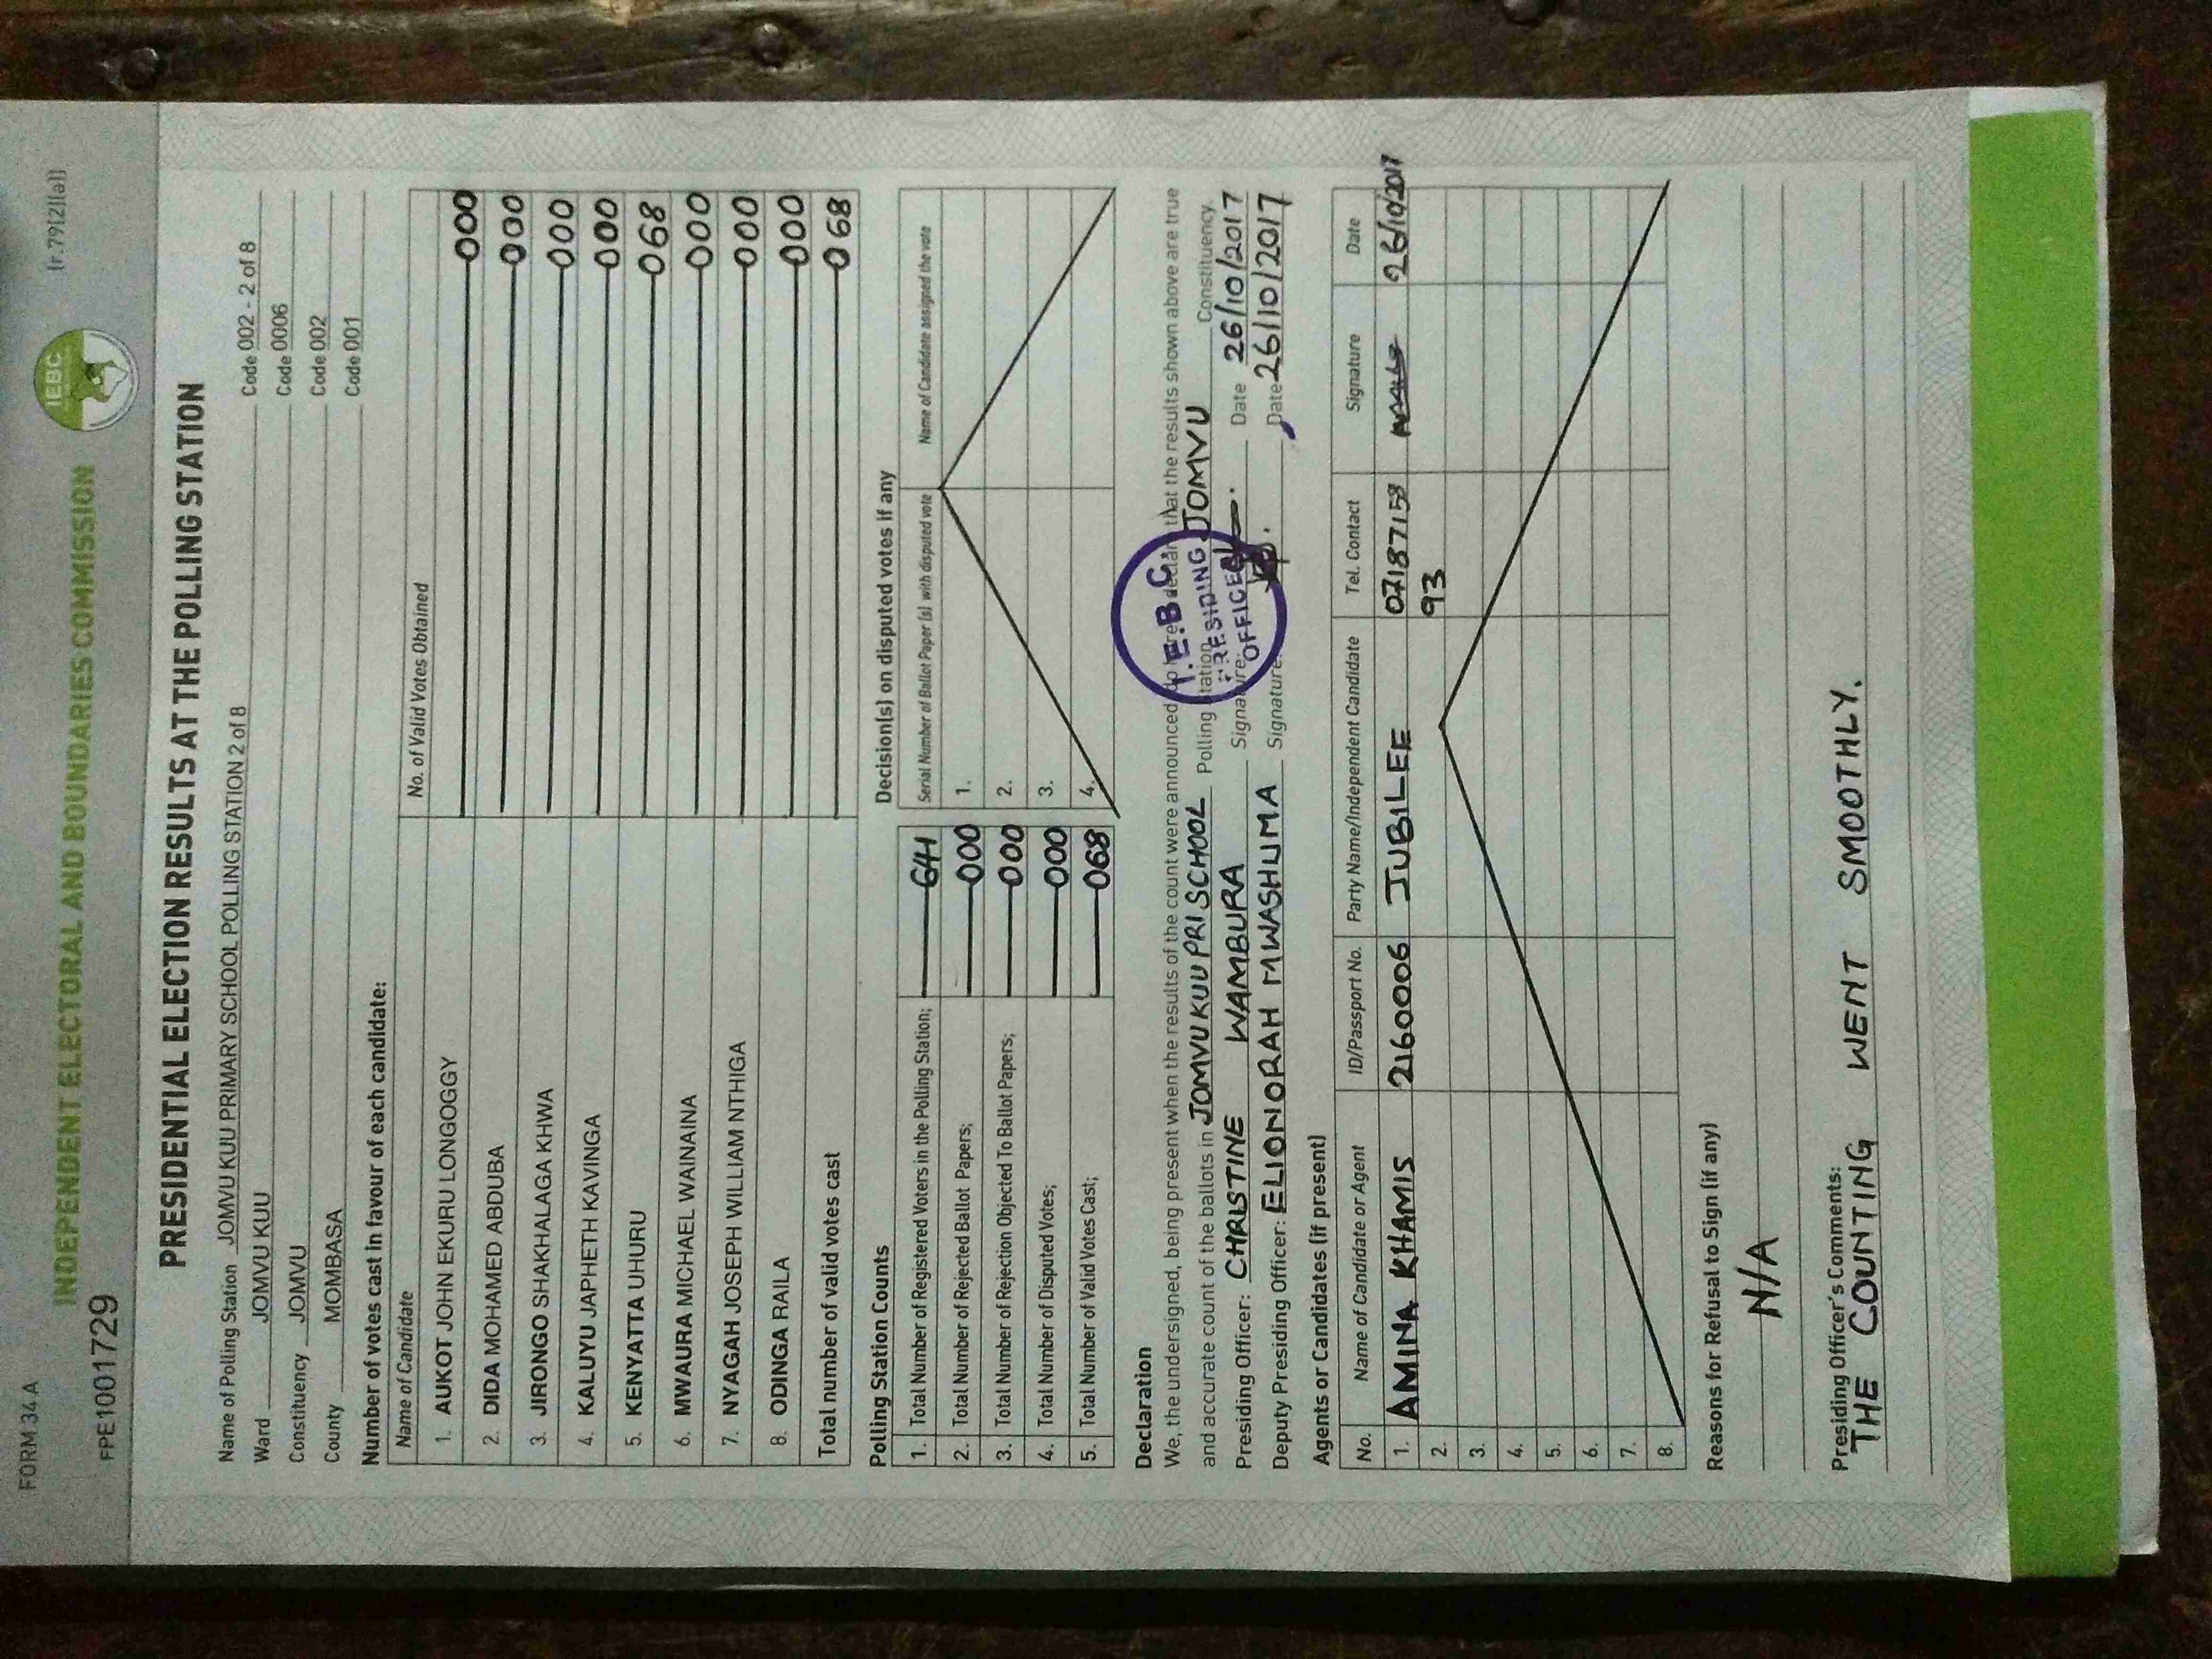 FORM 34 A
(r.79(2)(a))
INDEPENDENT ELECTORAL AND BOUNDARIES COMMISSION
IEBC
FPE1001729
PRESIDENTIAL ELECTION RESULTS AT THE POLLING STATION
Name of Polling Station JOMVU KUU PRIMARY SCHOOL POLLING STATION 2 of 8 Code 002 - 2 of 8
Ward JOMVU KUU Code 0006
Constituency JOMVU Code 002
County MOMBASA Code 001
Number of votes cast in favour of each candidate:
Name of Candidate No. of Valid Votes Obtained
1. AUKOT JOHN EKURU LONGOGGY 000
2. DIDA MOHAMED ABDUBA 000
3. JIRONGO SHAKHALAGA KHWA 000
4. KALUYU JAPHETH KAVINGA 000
5. KENYATTA UHURU 068
6. MWAURA MICHAEL WAINAINA 000
7. NYAGAH JOSEPH WILLIAM NTHIGA 000
8. ODINGA RAILA 000
Total number of valid votes cast 068
Polling Station Counts
1. Total Number of Registered Voters in the Polling Station; 641
2. Total Number of Rejected Ballot Papers; 000
3. Total Number of Rejection Objected To Ballot Papers; 000
4. Total Number of Disputed Votes; 000
5. Total Number of Valid Votes Cast; 068
Decision(s) on disputed votes if any
Serial Number of Ballot Paper (s) with disputed vote Name of Candidate assigned the vote
1.
2.
3.
4.
Declaration
We, the undersigned, being present when the results of the count were announced, do hereby declare that the results shown above are true
and accurate count of the ballots in JOMVU KUU PRI SCHOOL Polling Station, JOMVU Constituency.
Presiding Officer: CHRISTINE WAMBURA Signature: Date 26/10/2017
Deputy Presiding Officer: ELIONORAH MWASHUMA Signature: Date 26/10/2017
I.E.B.C
PRESIDING
OFFICER
Agents or Candidates (if present)
No. Name of Candidate or Agent ID/Passport No. Party Name/Independent Candidate Tel. Contact Signature Date
1. AMINA KHAMIS 2160006 JUBILEE 07187159 26/10/2017
93
2.
3.
4.
5.
6.
7.
8.
Reasons for Refusal to Sign (if any)
N/A
Presiding Officer's Comments:
THE COUNTING WENT SMOOTHLY.